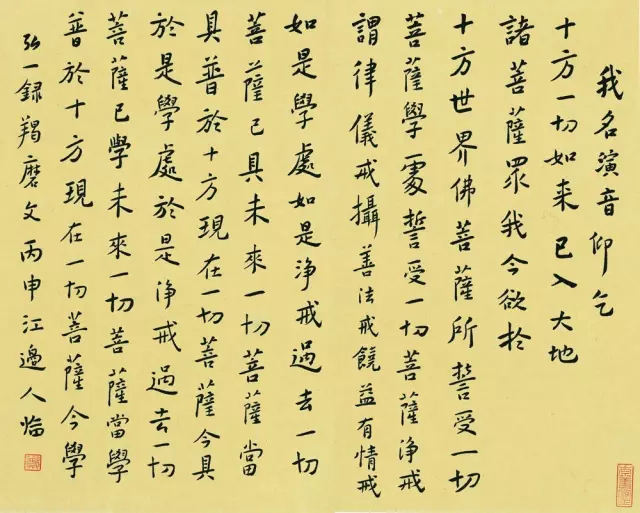 我名演音仰乞
十方一切如来已入大地
諸菩薩眾我今欲於
十方世界佛菩薩所誓受一切
菩薩學處誓受一切菩薩净戒
謂律儀戒攝善法戒饒益有情戒
如是學處如是净戒過去一切
菩薩已具未來一切菩薩當
具普於十方現在一切菩薩今具
於是學處於是净戒過去一切
菩薩已學未來一切菩薩當學
普於十方現在一切菩薩今學
弘一録羯磨文丙申江邊人臨